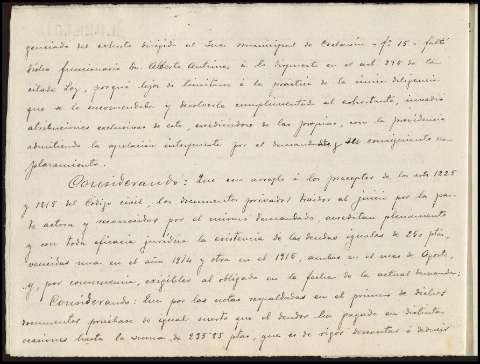 genciado del exhorto dirigido al Juez municipal de - fº 15 - faltó
dicho funcionario Dn. Alberto Antúnez, á lo dispuesto en el art 295 de la
citada Ley, porque lejos de limitarse á la práctica de la única diligencia
que se le encomendaba y devolverlo cumplimentado al exhortante, invadió
atribuciones exclusivas de este, excediéndose de las propias, con la providencia
admitiendo la apelación interpuesta por el demandado y su consiguiente em-
plazamiento.
Considerando: Que con arreglo á los preceptos de los arts 1225
y 1815 del Código civil, los documentos privados traidos al juicio por la par-
te actora y reconocidos por el mismo demandado, acreditan plenamente
y con toda eficacia jurídica la existencia de las deudas iguales de 250 ptas,
vencidas una en el año 1914 y otra en el 1915, ambas en el mes de Agosto,
y, por consecuencia, exigibles al obligado en la fecha de la actual demanda;
Considerando: Que por las notas respaldadas en el primero de dichos
documentos pruébase de igual suerte que el deudor ha pagado en distintas
ocasiones hasta la suma de 235'85 ptas, que es de rigor descontar ó deducir